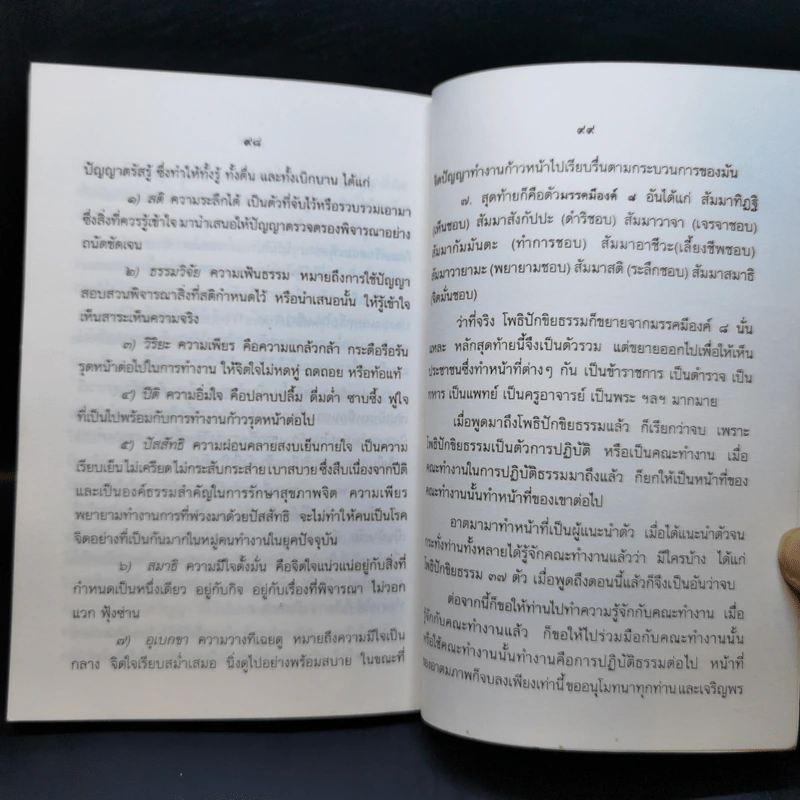 ๙๘
ปัญญาตรัสรู้ ซึ่งทำให้ทั้งรู้ ทั้งตื่น และทั้งเบิกบาน ได้แก่
๑) สติ ความระลึกได้ เป็นตัวที่จับไว้หรือรวบรวมเอามา
ซึ่งสิ่งที่ควรรู้เข้าใจ มานำเสนอให้ปัญญาตรวจตรองพิจารณาอย่าง
ถนัดชัดเจน
๒) ธรรมวิจัย ความเฟ้นธรรม หมายถึงการใช้ปัญญา
สอบสวนพิจารณาสิ่งที่สติกำหนดไว้ หรือนำเสนอนั้น ให้รู้เข้าใจ
เห็นสาระเห็นความจริง
๓) วิริยะ ความเพียร คือความแกล้วกล้า กระตือรือร้น
รุดหน้าต่อไปในการทำงาน ให้จิตใจไม่หดหู่ ถดถอย หรือท้อแท้
๔) ปีติ ความอิ่มใจ คือปลาบปลื้ม ดื่มด่ำ ซาบซึ้ง ฟูใจ
ที่เป็นไปพร้อมกับการทำงานก้าวรุดหน้าต่อไป
๕) ปัสสัทธิ ความผ่อนคลายสงบเย็นกายใจ เป็นความ
เรียบเย็น ไม่เครียด ไม่กระสับกระส่าย เบาสบาย ซึ่งสืบเนื่องจากปีติ
และเป็นองค์ธรรมสำคัญในการรักษาสุขภาพจิต ความเพียร
พยายามทำงานการที่พ่วงมาด้วยปัสสัทธิ จะไม่ทำให้คนเป็นโรค
จิตอย่างที่เป็นกันมากในหมู่คนทำงานในยุคปัจจุบัน
๖) สมาธิ ความมีใจตั้งมั่น คือจิตใจแน่วแน่อยู่กับสิ่งที่
กำหนดเป็นหนึ่งเดียว อยู่กับกิจ อยู่กับเรื่องที่พิจารณา ไม่วอก
แวก ฟุ้งซ่าน
๗) อุเบกขา ความวางทีเฉยดู หมายถึงความมีใจเป็น
กลาง จิตใจเรียบสม่ำเสมอ นิ่งดูไปอย่างพร้อมสบาย ในขณะที่
๙๙
จิตปัญญาทำงานก้าวหน้าไปเรียบรื่นตามกระบวนการของมัน
๗. สุดท้ายก็คือตัวมรรคมีองค์ ๘ อันได้แก่ สัมมาทิฏฐิ
(เห็นชอบ) สัมมาสังกัปปะ (ดำริชอบ) สัมมาวาจา (เจรจาชอบ)
สัมมากัมมันตะ (ทำการชอบ) สัมมาอาชีวะ(เลี้ยงชีพชอบ)
สัมมาวายามะ (พยายามชอบ) สัมมาสติ (ระลึกชอบ) สัมมาสมาธิ
(จิตมั่นชอบ)
ว่าที่จริง โพธิปักขิยธรรมก็ขยายจากมรรคมีองค์ ๘ นั่น
แหละ หลักสุดท้ายนี้จึงเป็นตัวรวม แต่ขยายออกไปเพื่อให้เห็น
ประชาชนซึ่งทำหน้าที่ต่างๆ กัน เป็นข้าราชการ เป็นตำรวจ เป็น
ทหาร เป็นแพทย์ เป็นครูอาจารย์ เป็นพระ ฯลฯ มากมาย
เมื่อพูดมาถึงโพธิปักขิยธรรมแล้ว ก็เรียกว่าจบ เพราะ
โพธิปักขิยธรรมเป็นตัวการปฏิบัติ หรือเป็นคณะทำงาน เมื่อ
คณะทำงานในการปฏิบัติธรรมมาถึงแล้ว ก็ยกให้เป็นหน้าที่ของ
คณะทำงานนั้นทำหน้าที่ของเขาต่อไป
อาตมามาทำหน้าที่เป็นผู้แนะนำตัว เมื่อได้แนะนำตัวจน
กระทั่งท่านทั้งหลายได้รู้จักคณะทำงานแล้วว่า มีใครบ้าง ได้แก่
โพธิปักขิยธรรม ๓๗ ตัว เมื่อพูดถึงตอนนี้แล้วก็จึงเป็นอันว่าจบ
ต่อจากนี้ก็ขอให้ท่านไปทำความรู้จักกับคณะทำงาน เมื่อ
รู้จักกับคณะทำงานแล้ว ก็ขอให้ไปร่วมมือกับคณะทำงานนั้น
หรือใช้คณะทำงานนั้นทำงานคือการปฏิบัติธรรมต่อไป หน้าที่
ของอาตมภาพก็จบลงเพียงเท่านี้ ขออนุโมทนาทุกท่าน และเจริญพร